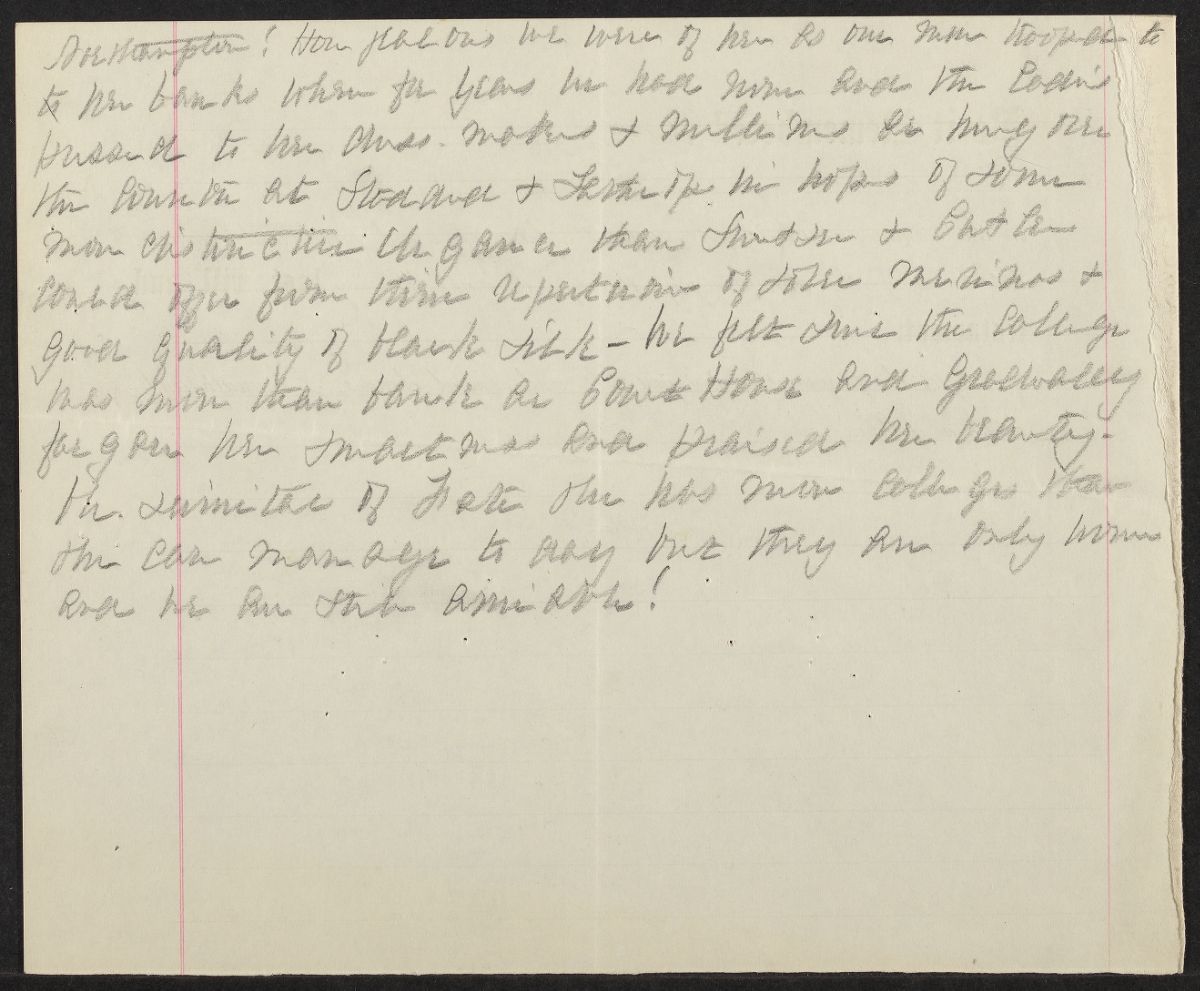 Northampton! How jealous we were of her as our men trooped to
to her banks when for years we had none and the Ladies
pressed to her dress-makers & milliners or hung over
the counter at Stoddard & Lathrop in hopes of some
more distinctive elegance than Sweetser & Cutler
could offer from their repertoire of sober merinos &
good quality of black silk - we felt sure the College
was more than bank or Court House and gradually
forgave her smartness and praised her beauty -
The of Fate she has more colleges than
she can manage to day but they are only women
and we are still amiable!